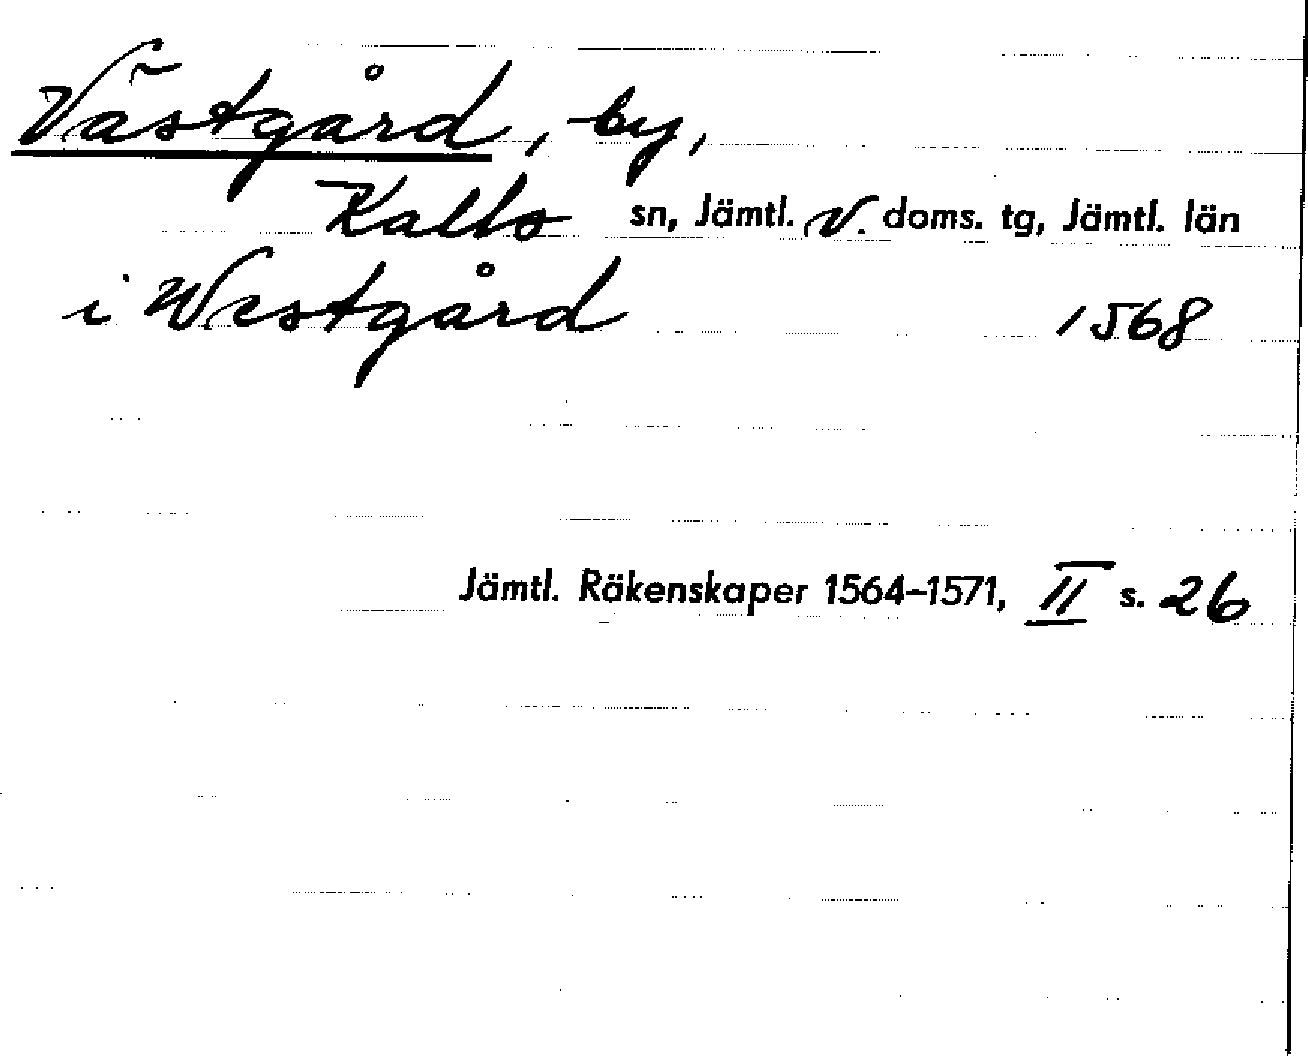 Västgård, by,
Kalls sn, Jämtl. V. doms. tg, Jämtl. län
i Westgård 1568
Jämtl. Räkenskaper 1564–1571, II s. 26